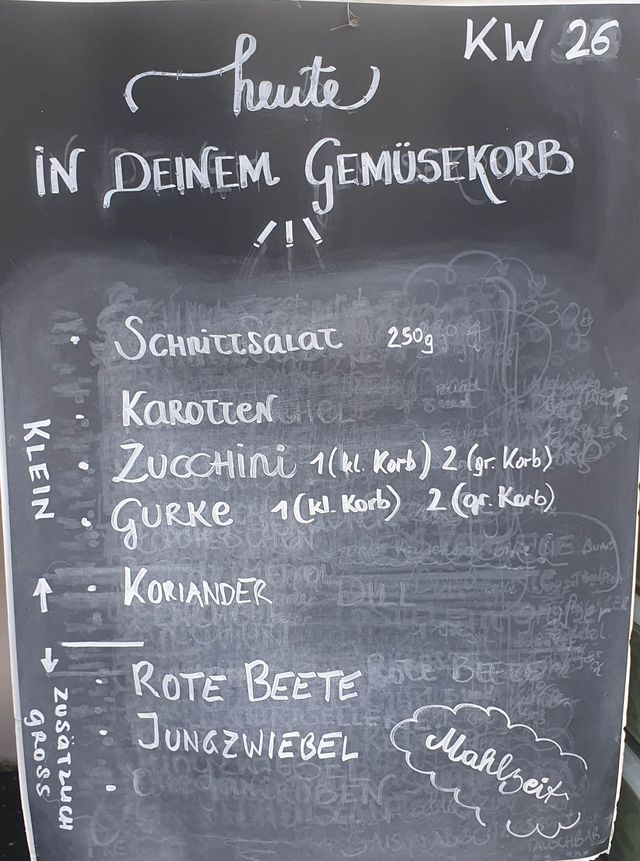 KW 26
heute
IN DEINEM GEMÜSEKORB
SCHNITTSALAT 250g
KAROTTEN
ZUCCHINI 1 (kl. Korb) 2 (gr. Korb)
GURKE 1 (kl. Korb) 2 (gr. Korb)
KORIANDER
DILL
ROTE BEETE ROTE BEETE
JUNGZWIEBEL
Mahlzeit
KLEIN
ZUSÄTZLICH
GROSS
TAUSCHBAR